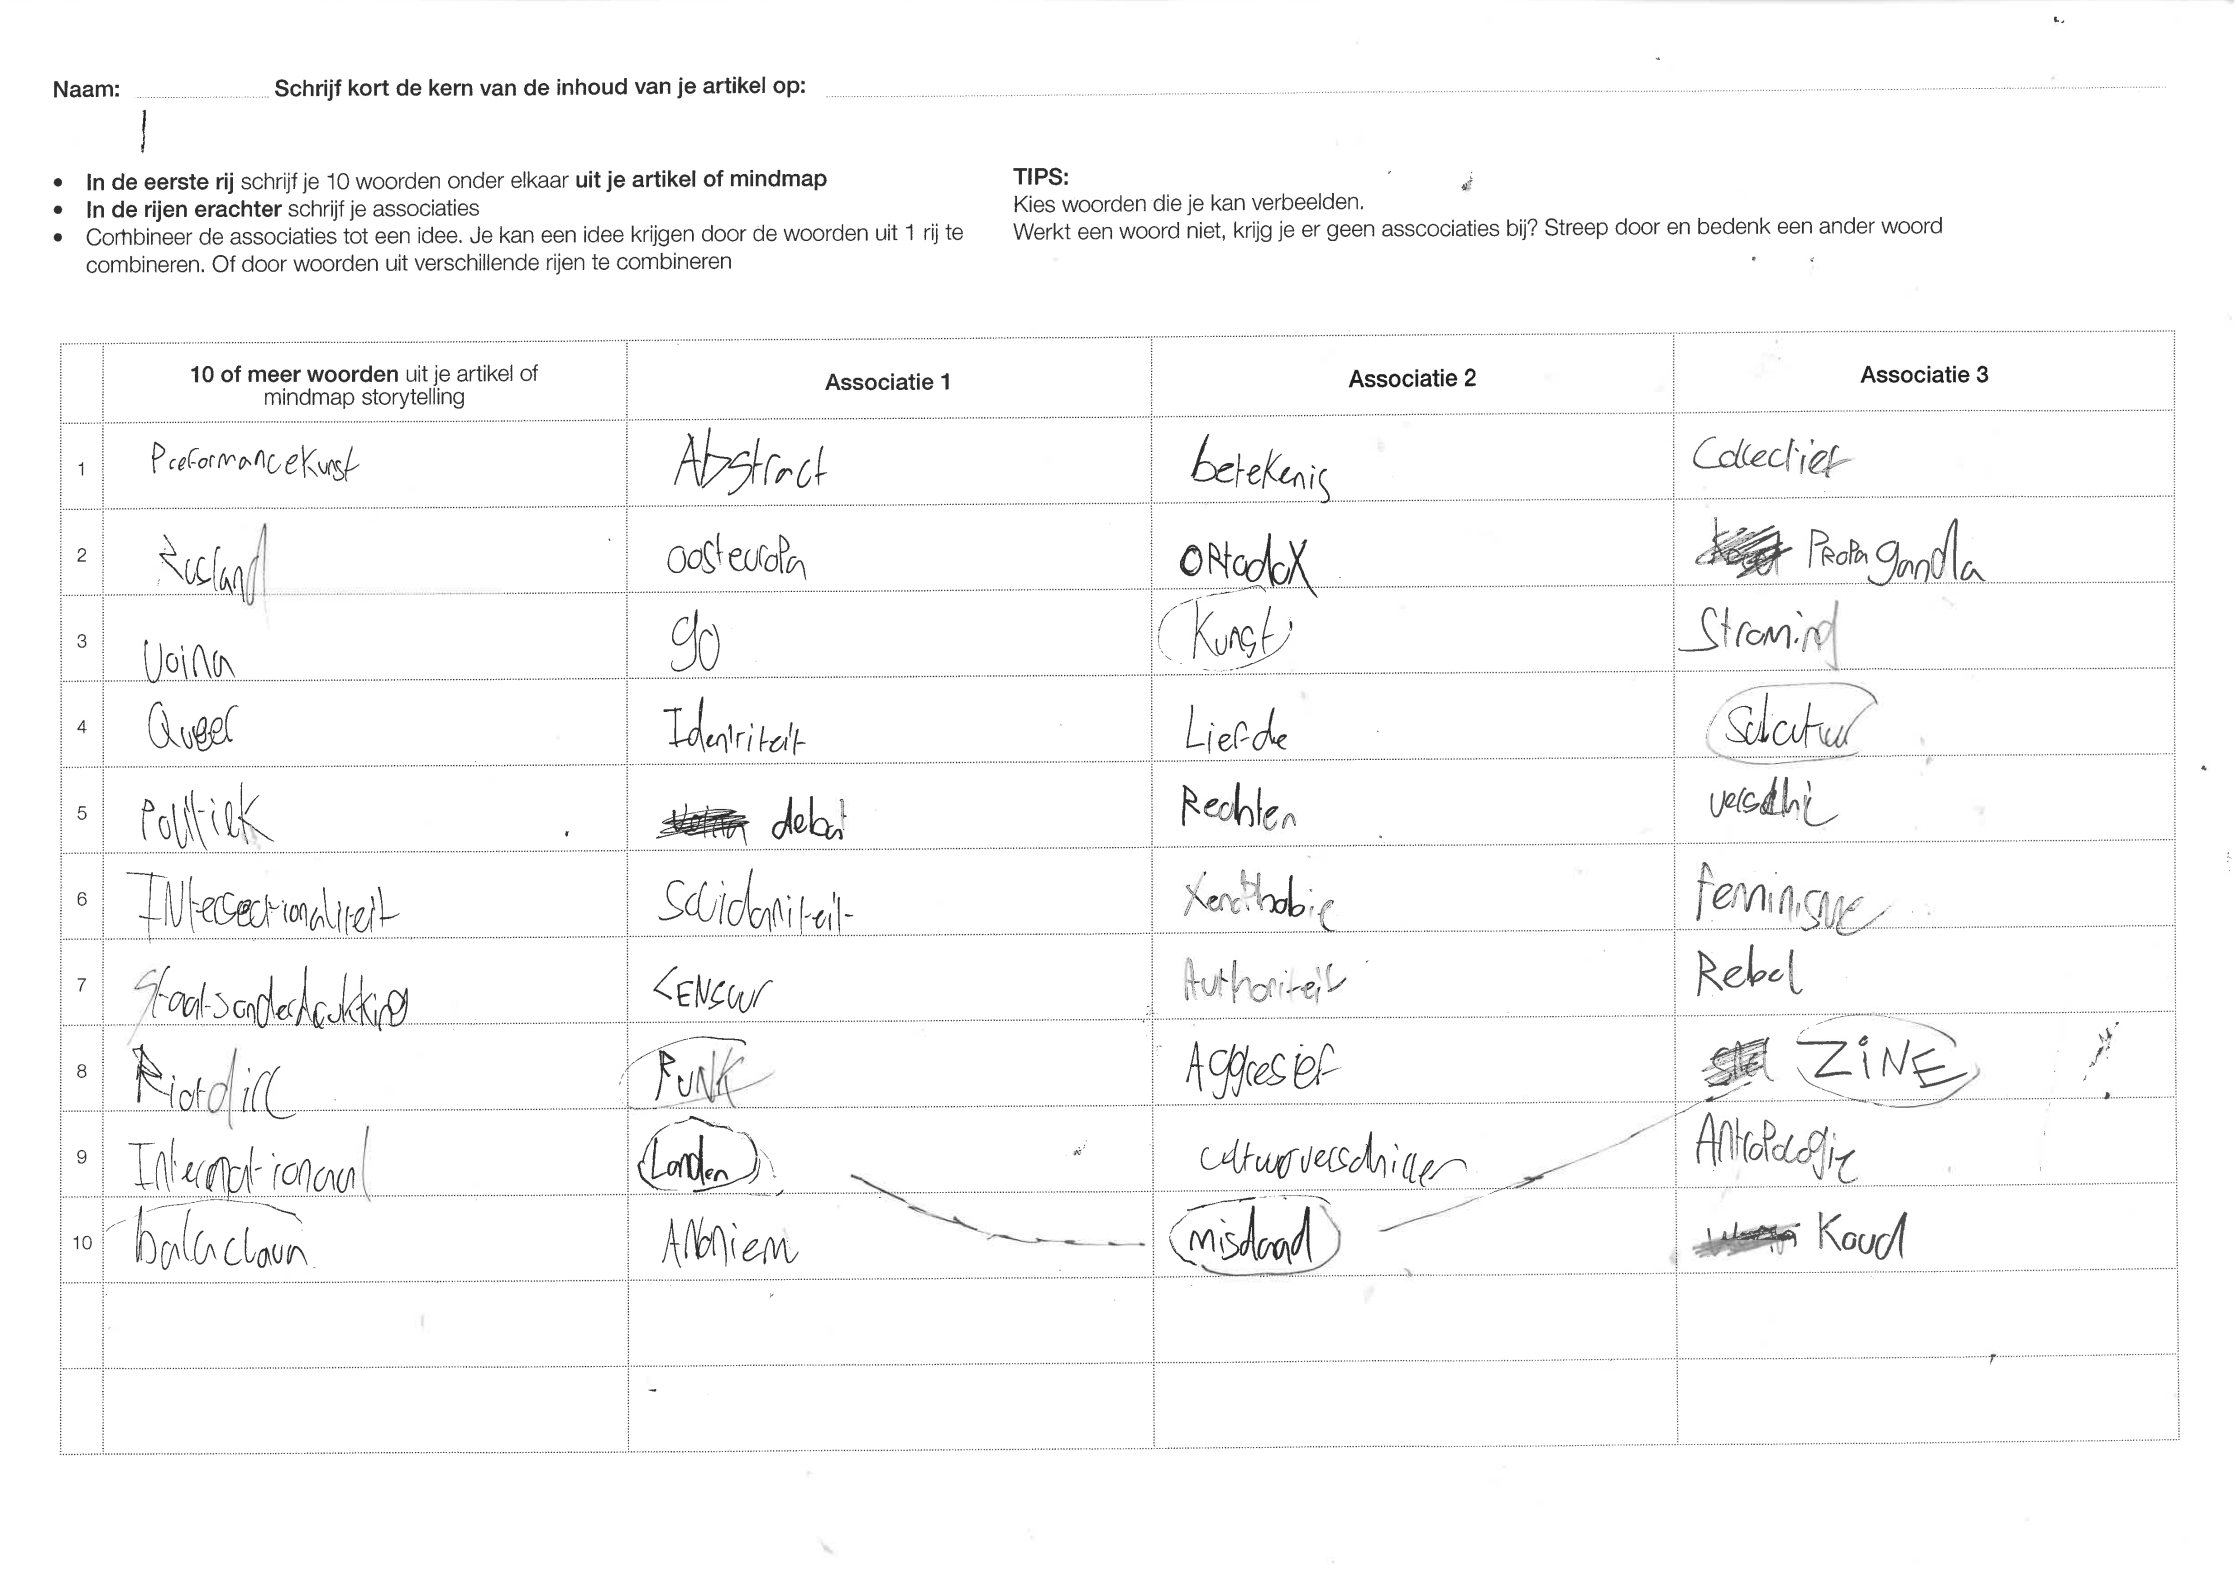 Naam: Schrijf kort de kern van de inhoud van je artikel op:
• In de eerste rij schrijf je 10 woorden onder elkaar uit je artikel of mindmap
• In de rijen erachter schrijf je associaties
• Combineer de associaties tot een idee. Je kan een idee krijgen door de woorden uit 1 rij te
combineren. Of door woorden uit verschillende rijen te combineren
TIPS:
Kies woorden die je kan verbeelden.
Werkt een woord niet, krijg je er geen asscociaties bij? Streep door en bedenk een ander woord
10 of meer woorden uit je artikel of
mindmap storytelling
Associatie 1
Associatie 2
Associatie 3
1 PreformanceKunst Abstract betekenis Collectief
2 Rusland oosteuropa ORtodoX PROPaganda
3 Voina 90 Kunst Stroming
4 Queer Identriteit Liefde
5 Politiek debat Rechten verschil
6 INtersectionaliteit Solidariteit Feminisme
7 Staatsonderdrukking CENSuur Authoriteit Rebel
8 PuNK Aggresief ZiNE
9 Internationaal Landen cultuurverschillen Antropologie
10 balaclava ANoniem misdaad Koud